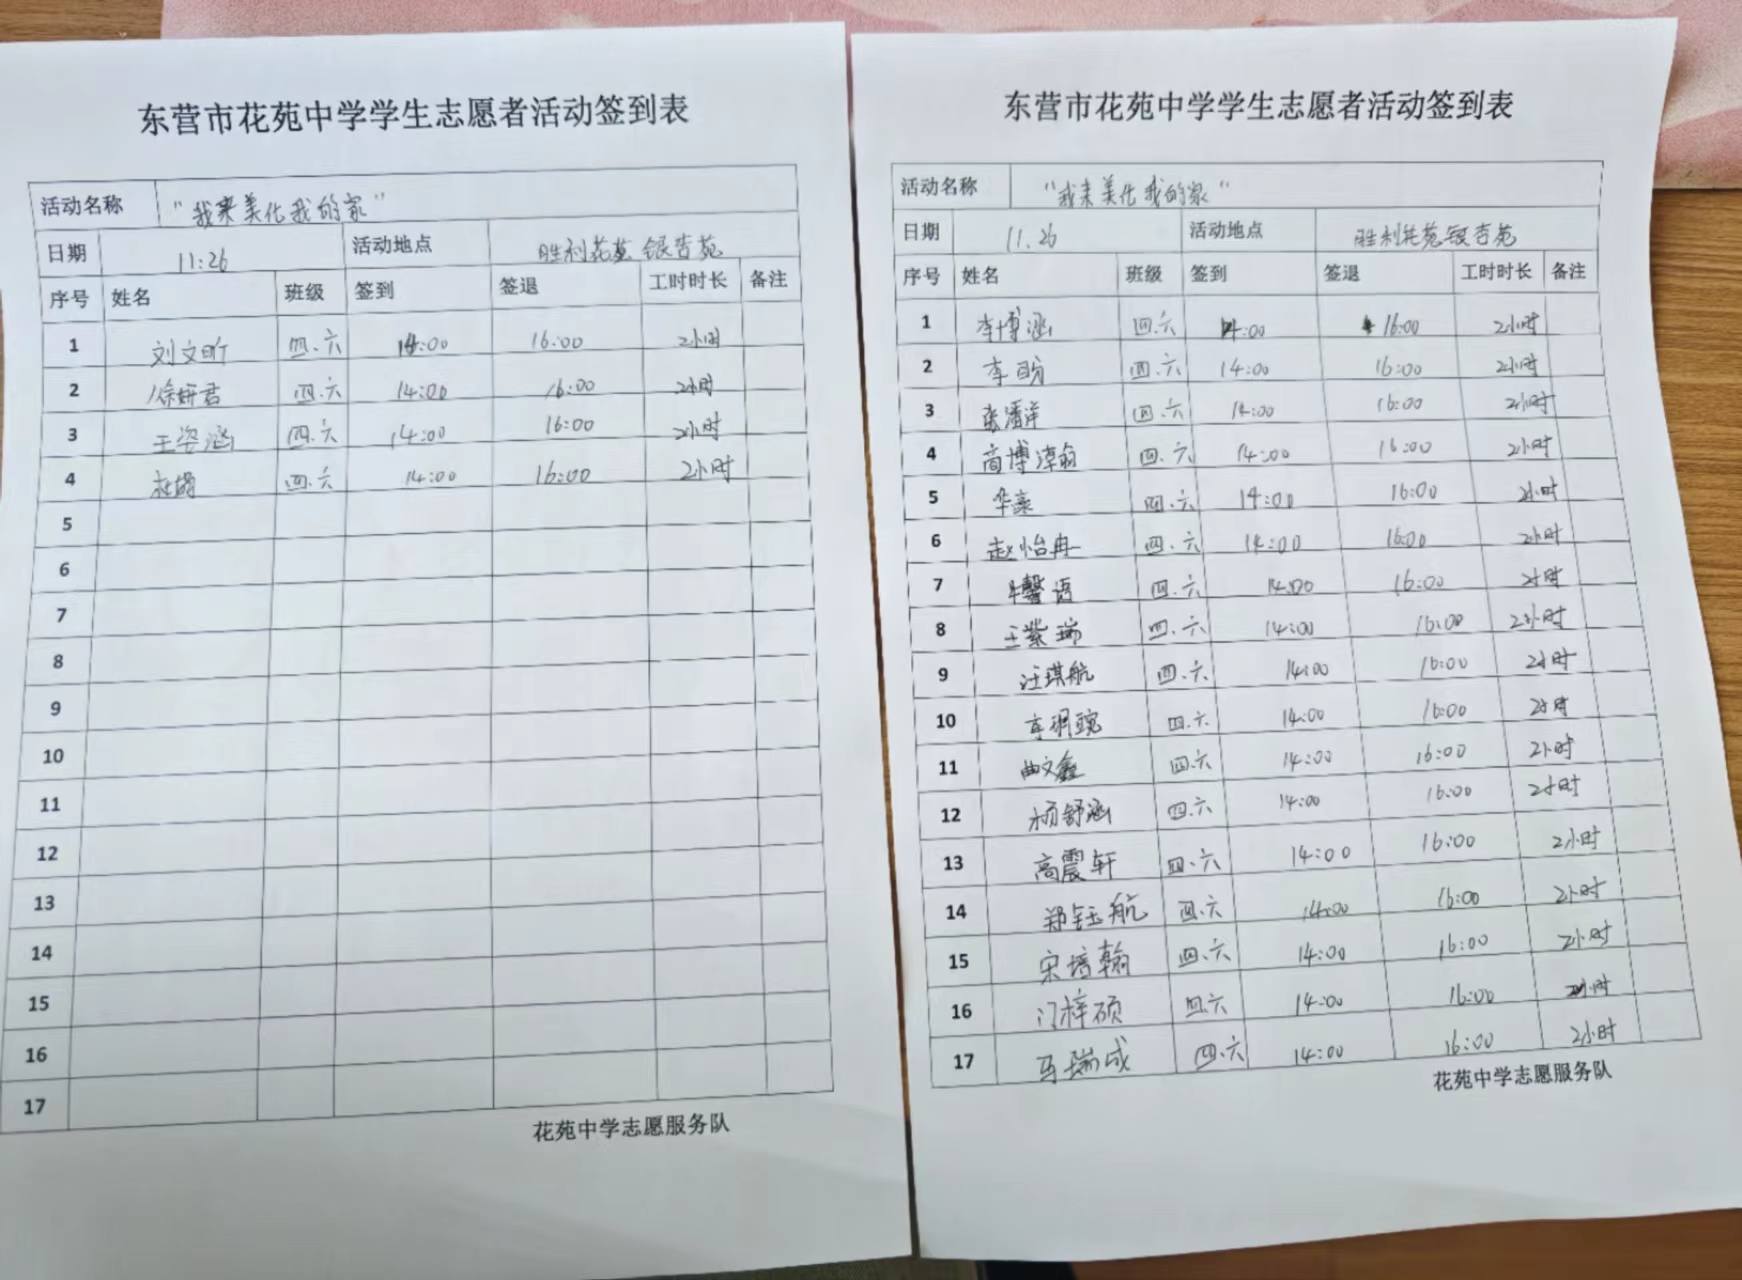 东营市花苑中学学生志愿者活动签到表
活动名称 "我来美化我的家"
日期 11:26 活动地点 胜利花苑 银杏苑
序号 姓名 班级 签到 签退 工时时长 备注
1 刘文昕 四.六 14:00 16:00 2小时
2 徐妍君 四.六 14:00 16:00 2小时
3 王姿涵 四.六 14:00 16:00 2小时
4 四.六 14:00 16:00 2小时
5
6
7
8
9
10
11
12
13
14
15
16
17
花苑中学志愿服务队
东营市花苑中学学生志愿者活动签到表
活动名称 "我来美化我的家"
日期 11.26 活动地点 胜利花苑银杏苑
序号 姓名 班级 签到 签退 工时时长 备注
1 李博涵 四.六 14:00 16:00 2小时
2 四.六 14:00 16:00 2小时
3 张潘洋 四.六 14:00 16:00 2小时
4 四.六 14:00 16:00 2小时
5 四.六 14:00 16:00 2小时
6 赵怡冉 四.六 14:00 16:00 2小时
7 四.六 14:00 16:00 2小时
8 王紫瑞 四.六 14:00 16:00 2小时
9 汪琪航 四.六 14:00 16:00 2小时
10 四.六 14:00 16:00 2小时
11 曲文鑫 四.六 14:00 16:00 2小时
12 四.六 14:00 16:00 2小时
13 高震轩 四.六 14:00 16:00 2小时
14 郑钰航 四.六 14:00 16:00 2小时
15 宋培翰 四.六 14:00 16:00 2小时
16 门梓硕 四.六 14:00 16:00 2小时
17 马瑞成 四.六 14:00 16:00 2小时
花苑中学志愿服务队